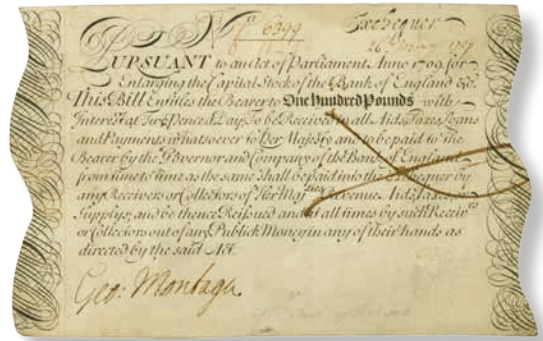 No 6399 Exchequer
PURSUANT to an Act of Parliament Anno 1709. for
Enlarging the Capital Stock of the Bank of England &c.
This Bill Entitles the Bearer to One hundred Pounds with
Interest at Two Pence a Day, To be Receiv'd in all Aids, Taxes, Loans
and Payments whatsoever to Her Majesty and to be paid to the
Bearer by the Governor and Company of the Bank of England
from time to time as the same shall be paid into the Exchequer by
any Receivers or Collectors of Her Majties Revenue Aids Taxes or
Supplys, and be thence Reissued and at all times by such Receivrs
or Collectors out of any Publick Money in any of their hands as
directed by the said Act.
Geo: Montagu